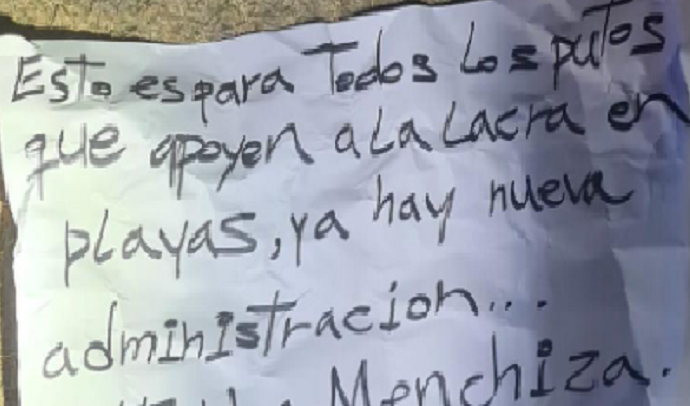 Esto es para Todos Los putos
que apoyen a La Lacra en
playas, ya hay nueva
administracion...
Menchiza.